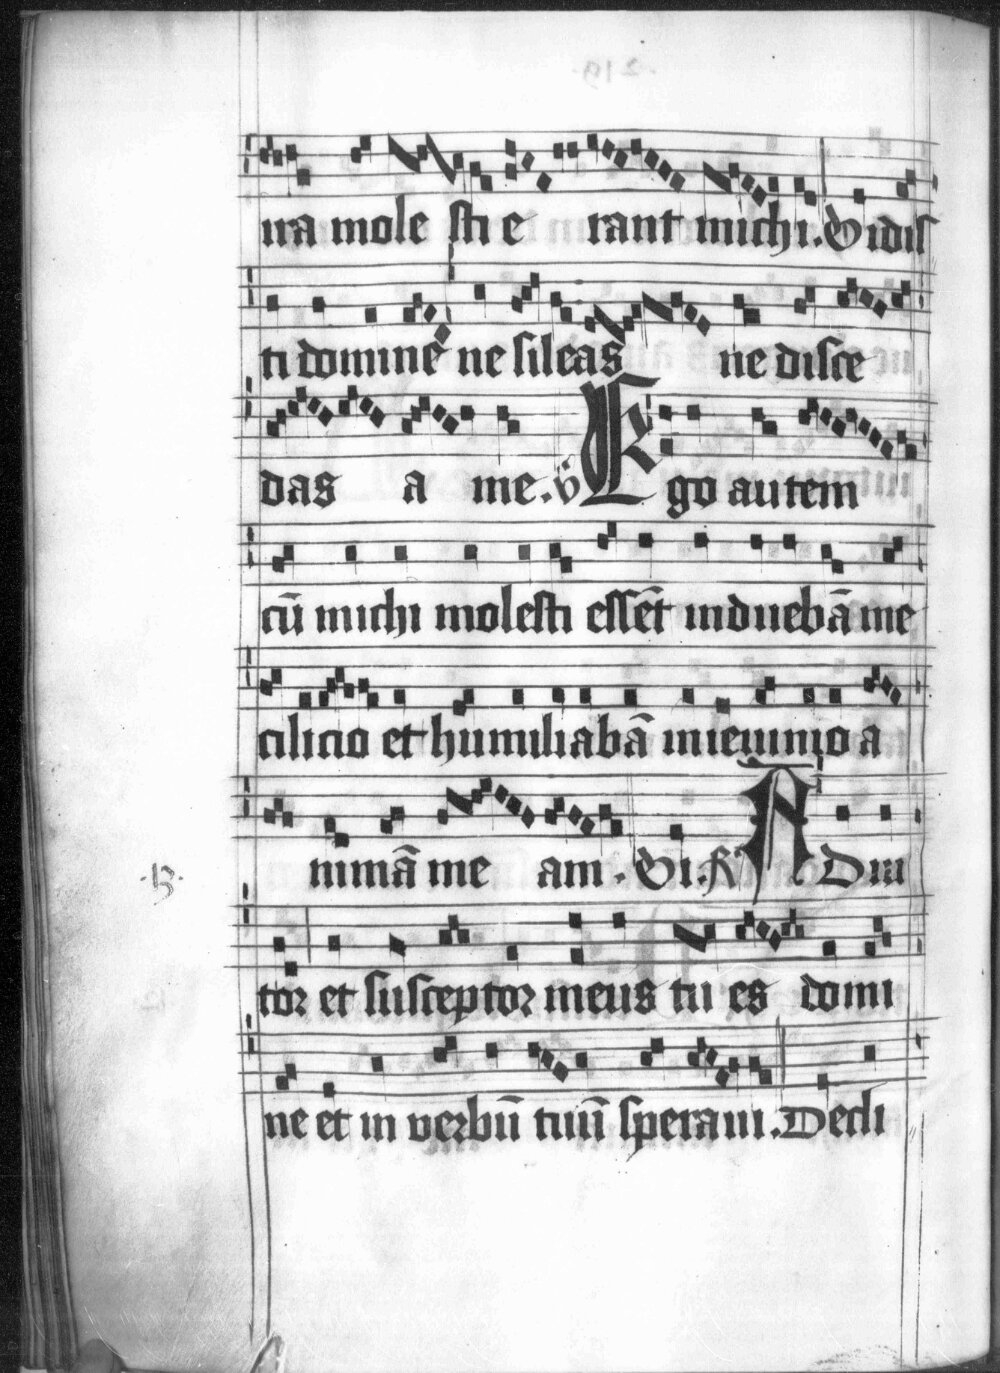 ira mole sti e rant michi. Vidis
ti domine ne sileas ne disce
das a me. ℣ Ego autem
cū michi molesti essēt induebā me
cilicio et humiliabā in ieiunio a
nimā me am. Vi. ℟ Adiu
.13.
tor et susceptor meus tu es domi
ne et in verbū tuū speraui. Decli